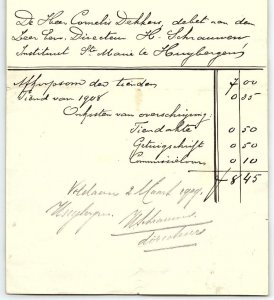 De Heer Cornelis Dekkers, debet aan den
Zeer Eerw. Directeur H. Schrauwen
Instituut Ste Marie te Huybergen
Afkoopsom der tienden 7 00
Tiend van 1908 0 35
Onkosten van overschrijving:
Tiendakte 0 50
Getuigschrift 0 50
Commissieloon 0 10
f 8 45
Voldaan 2 Maart 1909.
Huybergen HSchrauwen
directeur